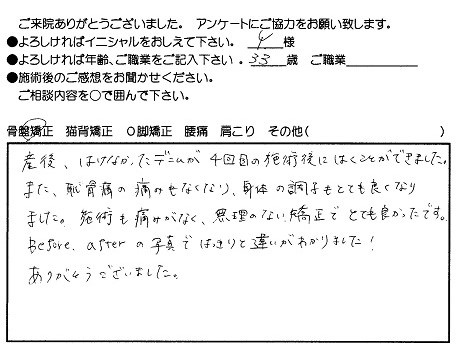 ご来院ありがとうございました。 アンケートにご協力をお願い致します。
●よろしければイニシャルをおしえて下さい。 Y 様
●よろしければ年齢、ご職業をご記入下さい。 33 歳 ご職業
●施術後のご感想をお聞かせください。
ご相談内容を○で囲んで下さい。
骨盤矯正 猫背矯正 O脚矯正 腰痛 肩こり その他( )
産後、はけなかったデニムが4回目の施術後にはくことができました。
また、恥骨痛の痛みもなくなり、身体の調子もとても良くなり
ました。施術も痛みがなく、無理のない矯正でとても良かったです。
Before、afterの写真ではっきりと違いがわかりました!
ありがとうございました。